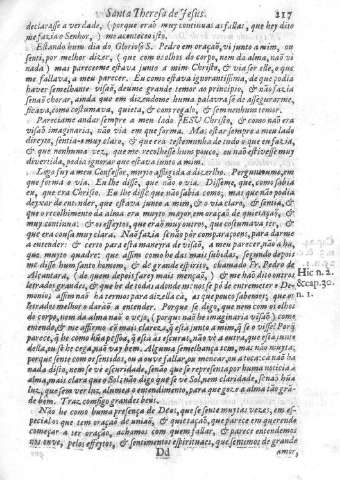 Santa Theresa de Jesus. 217
declarasse a verdade, (porque erão muy continuas as fallas, que hey dito
me fazia o Senhor, ) me aconteceo isto.
Estando hum dia do Glorioso S. Pedro em oração, vi junto a mim, ou
senti, por melhor dizer, (que com os olhos do corpo, nem da alma, não vi
nada) mas pareceome estava junto a mim Christo, & via ser elle, o que
me fallava, a meu parecer. Eu como estava ignorantissima, de que podia
haver semelhante visaõ, deume grande temor ao principio, & não fazia
senaõ chorar, ainda que em dizendome huma palavra só de assegurarme,
ficava, como costumava, quieta, & com regalo, & sem nenhum temor.
Pareciame andar sempre a meu lado JESU Christo, & como não era
visaõ imaginaria, não via em que forma. Mas estar sempre a meu lado
direyto, sentia-o muy claro, & que era testemunha de tudo o que eu fazia,
& que nenhuma vez, que me recolhesse hum pouco, ou não estivesse muy
divertida, podia ignorar que estava junto a mim.
Logo fuy a meu Confessor, muyto affligida a dizerlho. Perguntoume, em
que forma o via. Eu lhe disse, que não o via. Disseme, que, como sabia
eu, que era Christo. Eu lhe disse que não sabia como, mas que não podia
deyxar de entender, que estava junto a mim, & o via claro, & sentia, &
que o recolhimento da alma era muyto mayor, em oração de quietação, &
muy continua: & os effeytos, que eraõ muy outros, que costumava ter, &
que era cousa muy clara. Não fazia senão pòr comparaçoens, para darme
a entender: & certo para esta maneyra de visaõ, a meu parecer, não a ha,
que muyto quadre: que assim como he das mais subidas, segundo depois
me disse hum santo homem, & de grande espirito, chamado Fr. Pedro de
Alcantara, (de quem depois farey mais mençaõ) & me haõ dito outros
letrados grandes, & que he de todas adonde menos se pó de entremeter o De-
monio: assim naõ ha termos para dizella cà, as que pouco sabemos, que os
letrados melhor o daraõ a entender. Porque se digo, que nem com os olhos
do corpo, nem da alma naõ o vejo, (porque naõ he imaginaria visaõ) como
entendo, & me affirmo cõ mais clareza, q̃ està junto a mim, q̃ se o visse? Porq̃
parece, q̃ he como hũa pessoa, q̃ està às escuras, naõ ve a outra, que està junto
della, ou se he cega, naõ vay bem. Alguma semelhança tem, mas não muyta,
porque sente com os sentidos, ou a ouve fallar, ou mencar, ou a toca: cà naõ ha
nada disto, nem se vè escuridade, senão que se representa por huma noticia a
alma, mais clara que o Sol; não digo que se ve Sol, nem claridade, senaõ hũa
luz, que sem ver luz, alumea o entendimento, para que goze a alma taõ gran-
de bem. Traz comsigo grandes bens.
Não he como huma presença de Deos, que se sente muytas vezes, em es-
pecial os que tem oração de uniaõ, & quietação, que parece em querendo
começar a ter oração, achamos com quem fallar, & parece entendemos
nos ouve, pelos effeytos, & sentimentos espirituaes, que sentimos de grande
Dd amor,
Hic n. 2.
& cap. 30.
n. 1.